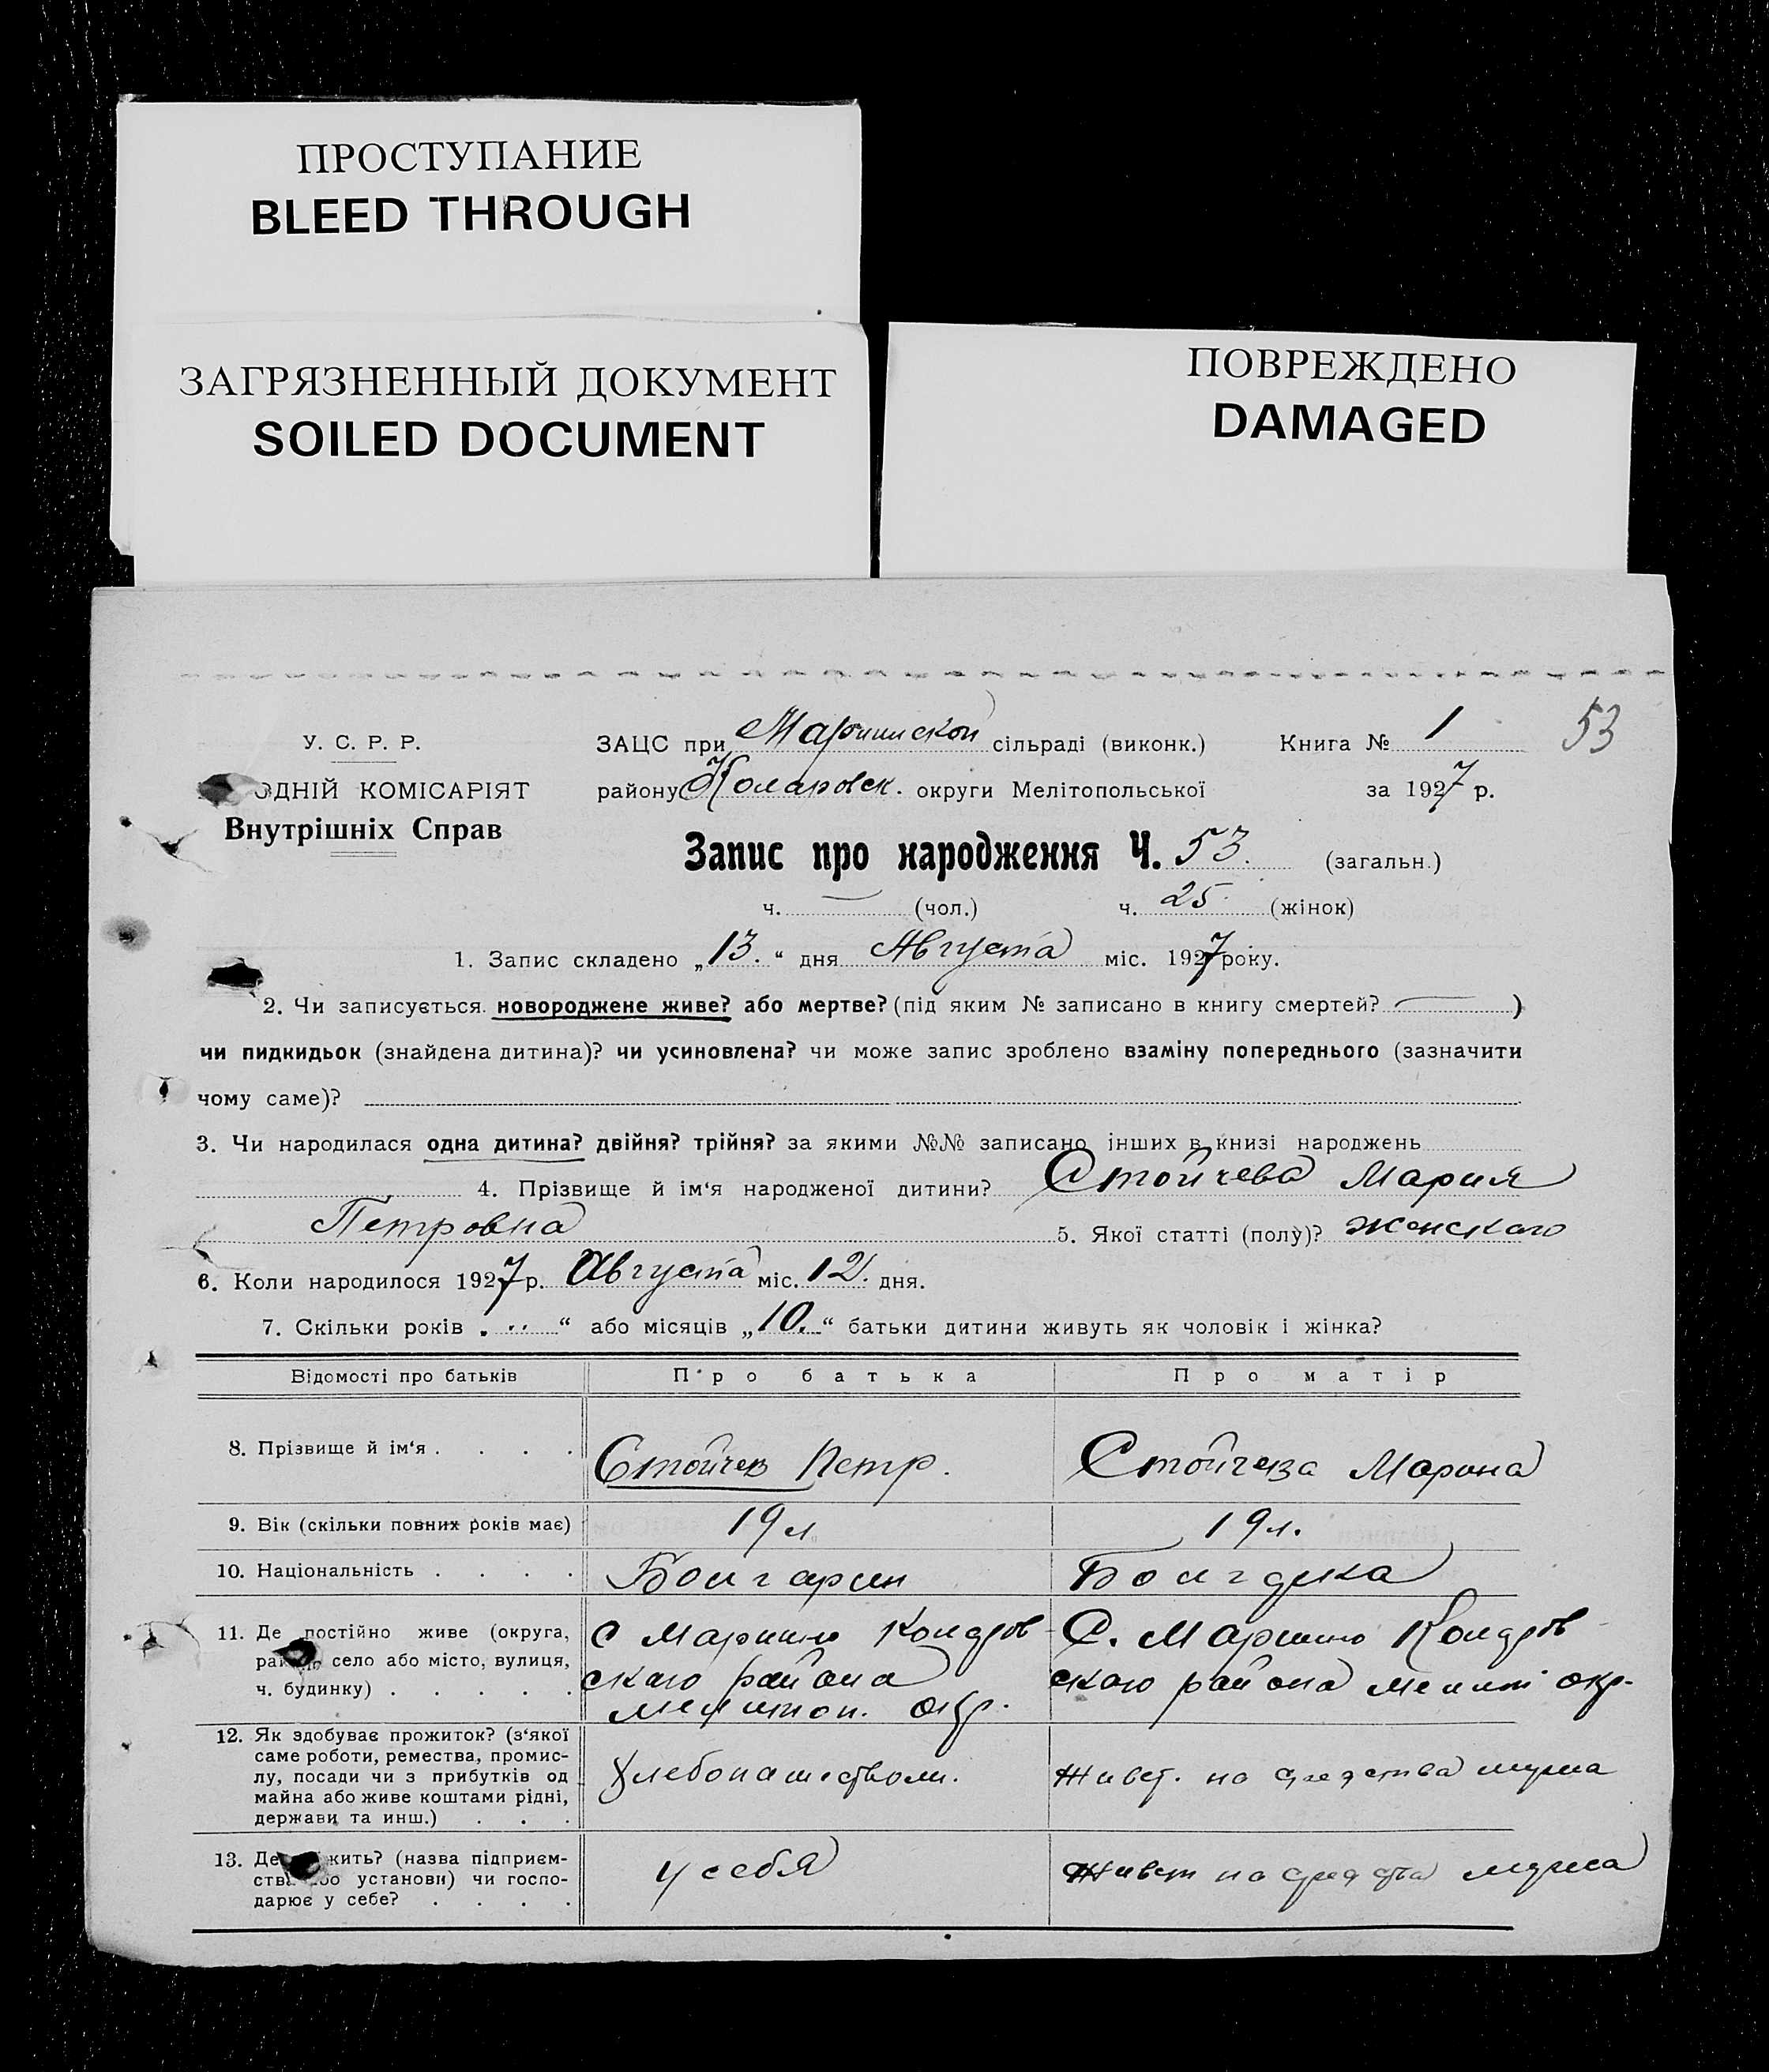 ПРОСТУПАНИЕ
BLEED THROUGH
ЗАГРЯЗНЕННЫЙ ДОКУМЕНТ
SOILED DOCUMENT
ПОВРЕЖДЕНО
DAMAGED
53
У. С. Р. Р.
ЗАЦС при Марииской сільраді (виконк.) Книга № 1
ОДНІЙ КОМІСАРІЯТ
району Коларовск. округи Мелітопольської за 1927 р.
Внутрішніх Справ
Запис про народження Ч. 53. (загальн.)
ч. — (чол.) ч. 25. (жінок)
1. Запис складено „13.“ дня Августа міс. 1927 року.
2. Чи записується новороджене живе? або мертве? (під яким № записано в книгу смертей? — )
чи пидкидьок (знайдена дитина)? чи усиновлена? чи може запис зроблено взаміну попереднього (зазначити
чому саме)?
3. Чи народилася одна дитина? двійня? трійня? за якими №№ записано інших в книзі народжень
4. Прізвище й ім‘я народженої дитини? Стойчева Мария
Петровна 5. Якої статті (полу)? женского
6. Коли народилося 1927 р. Августа міс. 12. дня.
7. Скільки років „ .. “ або місяців „10.“ батьки дитини живуть як чоловік і жінка?
Відомості про батьків Про батька Про матір
8. Прізвище й ім‘я . . . . Стойчев Петр. Стойчева Марина
9. Вік (скільки повних років має) 19 л. 19 л.
10. Національність . . . . Болгарин Болгарка
11. Де постійно живе (округа, с Марино С. Марино
село або місто, вулиця, ского района ского района Мелит окр.
ч. будинку) . . . . . Мелитоп. окр.
12. Як здобуває прожиток? (з‘якої
саме роботи, ремества, промис-
лу, посади чи з прибутків од Хлебопашеством. Живет. на средства мужа
майна або живе коштами рідні,
держави та инш.) . . .
13. Де жить? (назва підприєм-
або установи) чи госпо- у себя Живет на средства мужа
дарює у себе? . . . .